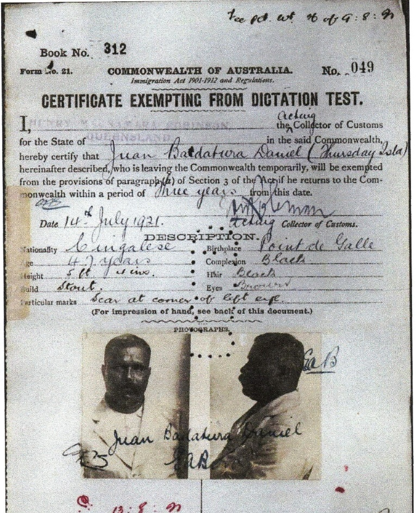 Book No. 312
Form No. 21.
COMMONWEALTH OF AUSTRALIA.
No. 049
Immigration Act 1901-1912 and Regulations.
CERTIFICATE EXEMPTING FROM DICTATION TEST.
Acting
I, HENRY ROBINSON the Collector of Customs
for the State of QUEENSLAND in the said Commonwealth,
hereby certify that Juan Badatura Daniel (Thursday Isla)
hereinafter described, who is leaving the Commonwealth temporarily, will be exempted
from the provisions of paragraph (a) of Section 3 of the Act if he returns to the Com-
monwealth within a period of Three years from this date.
Date 14th July 1921. Acting Collector of Customs.
DESCRIPTION.
Nationality Cingalese Birthplace Point de Galle
Age 47 years Complexion Black
Height 5 ft ins. Hair Black
Build Stout. Eyes Brown
Particular marks Scar at corner of left eye.
(For impression of hand, see back of this document.)
PHOTOGRAPHS.
Juan Badatura Daniel